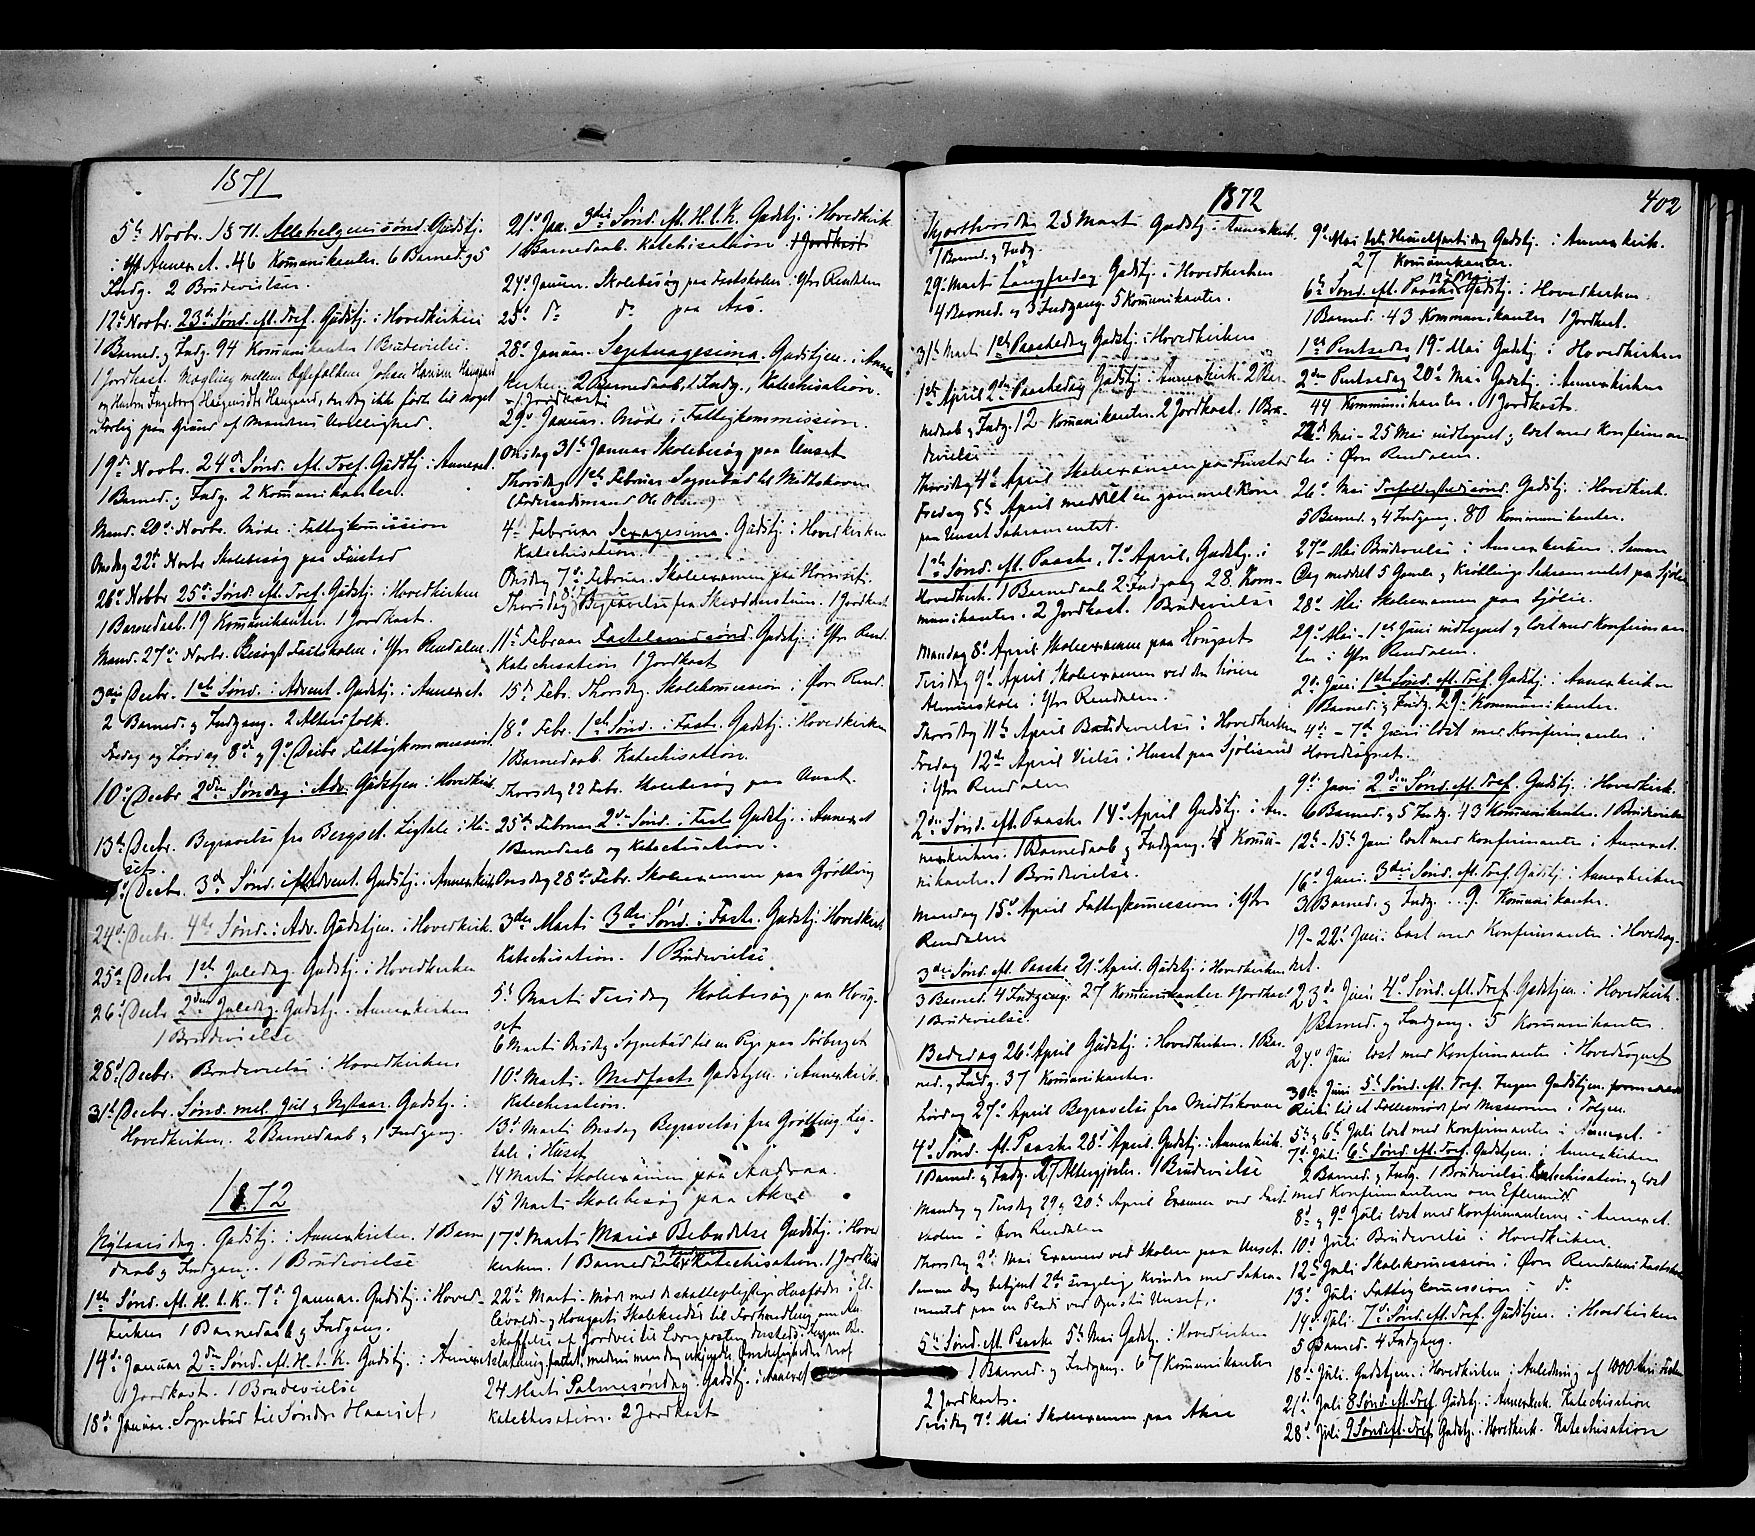 1871
5te Novbr. 1871. Allehelgenssønd. Gudstj.
i Annexet. 46 Kommunikanter. 6 Barned. og 5
Indg. 2 Brudevielser.
12te Novbr. 23de Sønd. eft. Tref. Gudstj. i Hovedkirken
1 Barned. og Indg. 94 Kommunikanter 1 Brudevielse.
1 Jordkast. Mægling mellem Ægtefolkene Johan
og Hustru Ingeborg der dog ikke førte til noget
Forlig paa Grund af Mandens
19de Novbr. 24de Sønd. eft. Tref. Gudstj. i Annexet.
1 Barned. og Indg. 2 Kommunikanter.
Mand. 20de Novbr. Møde i Fattigkommission
Onsdag 22de Novbr. Skolebesøg paa Fiustad
26de Novbr. 25de Sønd. eft. Tref. Gudstj. i Hovedkirken
1 Barnedaab. 19 Kommunikanter. 1 Jordkast.
Mand. 27de Novbr. Besøgt Fastskolen i Ytre Rendalen.
3die Decbr. 1ste Sønd. i Advent. Gudstj. i Annexet.
2 Barned. og Indgang. 2 Altersfolk.
Fredag og Lørdag 8de og 9de Decbr Fattigkommission.
10de Decbr. 2den Søndag i Adv. Gudstjen. i Hovedkirk.
13de Decbr. Begravelse fra Bergset. Ligtale i Hu-
set.
Decbr. 3de Sønd. i Advent. Gudstj. i Annexkirk.
24de Decbr. 4de Sønd. i Adv. Gudstjen. i Hovedkirk.
25de Decbr 1ste Juledag Gudstj. i Hovedkirken
26de Decbr 2den Juledag. Gudstj. i Annexkirken
1 Brudevielse
28de Decbr. Brudevielse i Hovedkirken
31te Decbr. Sønd. mel. Jul og Nytaar. Gudstj. i
Hovedkirken. 2 Barnedaab og 1 Indgang.
1872
Nytaarsdag. Gudstj. i Annexkirken. 1 Barne
daab og Indgang. 1 Brudevielse
1ste Sønd. eft. H. t. K. 7de Januar. Gudstj. i Hoved-
kirken 1 Barnedaab og Indgang.
14de Januar 2den Sønd. eft. H. t. K. Gudstj. i Annexet
1 Jordkast. 1 Brudevielse
18de Januar. Sognebud til Søndre Haarset.
21de Jan. 3die Sønd. eft. H. t. K. Gudstj. i Hovedkirk
1 Barnedaab. Katechisation. 1 Jordkast.
24de Januar. Skolebesøg paa Fastskolen i Ytre Rendalen
25de do do paa Aas.
28de Januar. Septuagesima. Gudstjen. i Annex
kirken. 2 Barnedaab, 1 Indg., Katechisation.
1 Jordkast
29de Januar. Møde i Fattigkommission.
Onsdag 31te Januar Skolebesøg paa Unset
Thorsdag 1ste Februar Sognebud til Midtskoven
Ole Olsen)
4de Februar Sexagesima. Gudstj. i Hovedkirken
Katechisation.
Onsdag 7de Februar. Skoleexamen paa Hornset.
Thorsdag 8de Februar Begravelse fra 1 Jordkast
11te Februar Fastelavnssønd. Gudstj. i Ytre Rend.
Katechisation 1 Jordkast
15de Febr. Thorsdag. Skolekommission i Øvre Rend.
18de Febr. 1ste Sønd. i Fast. Gudstj. i Hovedkirken
1 Barnedaab. Katechisation.
Thorsdag 22 Febr. Skolebesøg paa Unset.
25de Februar 2den Sønd. i Fast. Gudstj. i Annexet
1 Barnedaab og Katechisation.
Onsdag 28de Febr. Skoleexamen paa Grøtting
3die Marts 3die Sønd. i Faste. Gudstj. i Hovedkirk.
Katechisation. 1 Brudevielse
5te Marts Tirsdag Skolebesøg paa Houg-
set
6 Marts Onsdag Sognebud til en Pige paa Sørberget
10de Marts. Midfaste Gudstjen. i Annexkirk.
Katechisation.
13de Marts Onsdag Begravelse fra Grøtting. Lig-
tale i Huset
14 Marts Skoleexamen paa Andraa.
15 Marts Skolebesøg paa Akre
17de Marts Mariæ Bebudelse Gudstj. i Hoved
kirken. 1 Barnedaab Katechisation. 1 Jordkast
22de Marts Møde med de skattepligtige Husfædre i El-
levold- og Hougsets Skolekreds til Forhandling om An-
skaffelse af Jordvei til Lærerposten dersteds. Ingen Be-
slutning fattet,
24 Marts Palmesøndag. Gudstj. i Annexet
Katechisation. 2 Jordkast
1872
402
Skjærthorsdag 28 Marts Gudstj. i Annexkirk.
1 Barned. og Indg.
29de Marts Langfredag Gudstj. i Hovedkirken
4 Barned. og 3 Indgang. 5 Kommunikanter.
31te Marts 1ste Paaskedag Gudstj. i Hovedkirken
1ste April 2den Paaskedag Gudstj. i Annexkirk. 2 Bar-
nedaab og Indg. 12 Kommunikanter. 2 Jordkast. 1 Bru-
devielse
Thorsdag 4de April Skoleexamen paa Fiustad
Fredag 5te April meddelt en gammel Kone
paa Unset Sakramentet.
1ste Sønd. eft. Paaske. 7de April. Gudstj. i
Hovedkirk. 1 Barnedaab 2 Indgang 28 Kom-
munikanter. 2 Jordkast. 1 Brudevielse
Mandag 8de April Skoleexamen paa Hougset
Tirsdag 9de April Skoleexamen ved den høiere
Almueskole i Ytre Rendalen.
Thorsdag 11te April Brudevielse i Hovedkirken
Fredag 12te April Vielse i Huset paa Sjølisand
i Ytre Rendalen
2den Sønd. eft. Paaske 14de April Gudstj. i An-
nexkirken. 1 Barnedaab og Indgang. 4 Kommu-
nikanter. 1 Brudevielse.
Mandag 15de April Fattigkommission i Ytre
Rendalen
3die Sønd. eft. Paaske 21de April. Gudstj. i Hovedkirken
3 Barned. 4 Indgang. 27 Kommunikanter Jordkast
1 Brudevielse.
Bededag 26de April Gudstj. i Hovedkirken. 1 Bar-
ned. og Indg. 37 Kommunikanter.
Lørdag 27de April Begravelse fra Midtskoven
4de Sønd. eft. Paaske 28de April. Gudstj. i Annexkirk.
1 Barned. og Indg. 27 Altergjæster. 1 Brudevielse
Mandag og Tirsdag 29 og 30te April Examen ved Fast-
skolen i Øvre Rendalen
Thorsdag 2den Mai Examen ved Skolen paa Unset.
Samme Dag betjent 2de svagelige Kvinder med Sakra-
mentet paa en Plads ved Unset.
5te Sønd. eft. Paaske 5te Mai Gudstj. i Hovedkirken
1 Barned. og Indgang. 67 Kommunikanter
2 Jordkast.
Tirsdag 7de Mai Skoleexamen paa Akre
9de Mai Christi Himmelfartsdag Gudstj. i Annexkirk.
27 Kommunikanter.
12te Mai
6te Sønd. eft. Paaske Gudstj. i Hovedkirken.
1 Barned. 43 Kommunikanter 1 Jordkast.
1ste Pintsedag 19de Mai Gudstj. i Hovedkirken
2den Pintsedag 20de Mai Gudstj. i Annexkirken
44 Kommunikanter. 1 Jordkast.
22de Mai - 25 Mai indtegnet og læst med Konfirman-
ter i Øvre Rendalen.
26de Mai Trefoldighedssønd. Gudstj. i Hovedkirk.
5 Barned. og 4 Indgang. 80 Kommunikanter.
27de Mai Brudevielse i Annexkirken. Samme
Dag meddelt 5 Gamle og Sakramentet paa Sjøli
28de Mai Skoleexamen paa Sjølie.
29de Mai - 1ste Juni indtegnet og læst med Konfirman-
ter i Ytre Rendalen.
2den Juni 1ste Sønd. eft. Tref. Gudstj. i Annexkirken
1 Barned. og Indg. 29 Kommunikanter.
4de - 7de Juni læst med Konfirmanter i
Hovedsognet.
9de Juni 2den Sønd. eft. Tref. Gudstj. i Hovedkirk.
6 Barned. og 5 Indg. 43 Kommunikanter. 1 Brudevielse
12te - 15te Juni læst med Konfirmanter i Annexet.
16de Juni 3die Sønd. eft. Tref. Gudstj. i Annexkirken
3 Barned. og Indg. 9 Kommunikanter.
19 - 22de Juni læst med Konfirmanter i Hovedsog-
net.
23de Juni 4de Sønd. eft. Tref. Gudstjen. i Hovedkirk.
1 Barned. og Indgang. 5 Kommunikanter.
24de Juni læst med Konfirmanter i Hovedsognet
30te Juni 5te Sønd. eft. Tref. Ingen Gudstjen.
Reise til et Fællesmøde for Missionen i Tolgen.
5te og 6te Juli læst med Konfirmanter i Annexet.
7de Juli 6te Sønd. eft. Tref. Gudstjen. i Annexkirken
2 Barned. og Indg. 1 Brudevielse. Katechisation og læst
med Konfirmanterne om Eftermidd.
8de og 9de Juli læst med Konfirmanterne i Annexet.
10de Juli Brudevielse i Hovedkirken.
12te Juli Skolekommission i Øvre Rendalens Fastskole
13de Juli Fattigkommission i do
14de Juli. 7de Sønd. eft. Tref. Gudstjen. i Hovedkirken
5 Barned. 4 Indgang.
18de Juli. Gudstjen. i Hovedkirken i Anledning af 1000 Aars Festen
21de Juli 8 Sønd. eft. Tref. Gudstj. i Annexkirk. Katechisation
28de Juli 9 Sønd. eft. Tref. Gudstj. i Hovedkirk. Katechisation